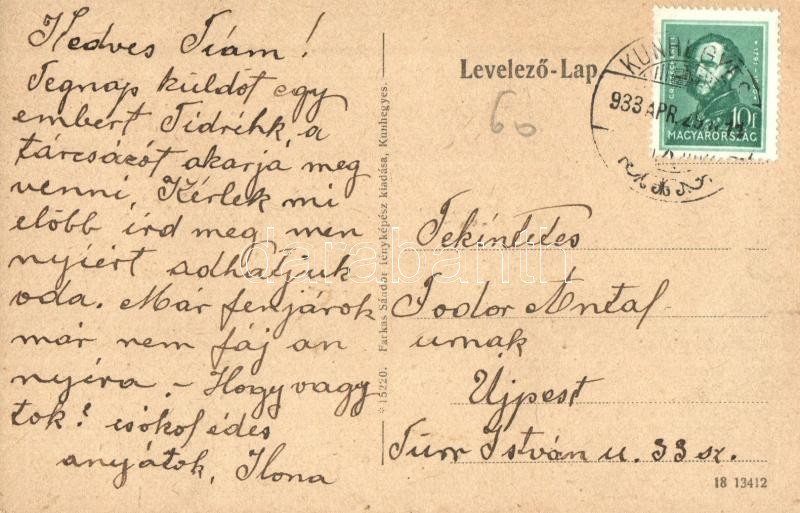 Kedves Fiam!
Tegnap küldöt egy
embert a
tárcsázót akarja meg
venni, Kérlek mi
előbb írd meg men
nyiért adhatjuk
oda. Már fenjárok
már nem fáj an
nyira. - Hogy vagy
tok? csókol édes
anyátok, Ilona
*15220. Farkas Sándor fényképész kiadása, Kunhegyes.
Levelező-Lap.
60
KUNHEGYES
933 APR. 29
10f
MAGYARORSZÁG
Tekintetes
Fodor Antal
urnak
Ujpest
Türr István u. 33 sz.
18 13412
darabanth